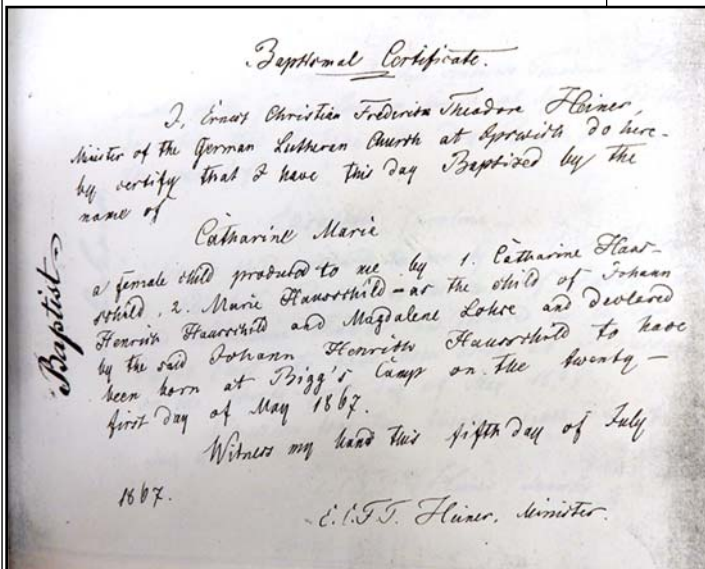 Baptismal Certificate.
I, Ernest Christian Frederick Theodore Heiner,
Minister of the German Lutheran Church at Ipswich do here-
by certify that I have this day Baptized by the
name of
Catharine Marie
a female child produced to me by 1. Catharine Haus-
schild, 2. Marie Hausschild - as the child of Johann
Henrich Hausschild and Magdalene Lohse and declared
by the said Johann Henrich Hausschild to have
been born at Bigg's Camp on the twenty-
first day of May 1867.
Witness my hand this fifth day of July
1867.
E.C.F.T. Heiner, Minister.
Baptist